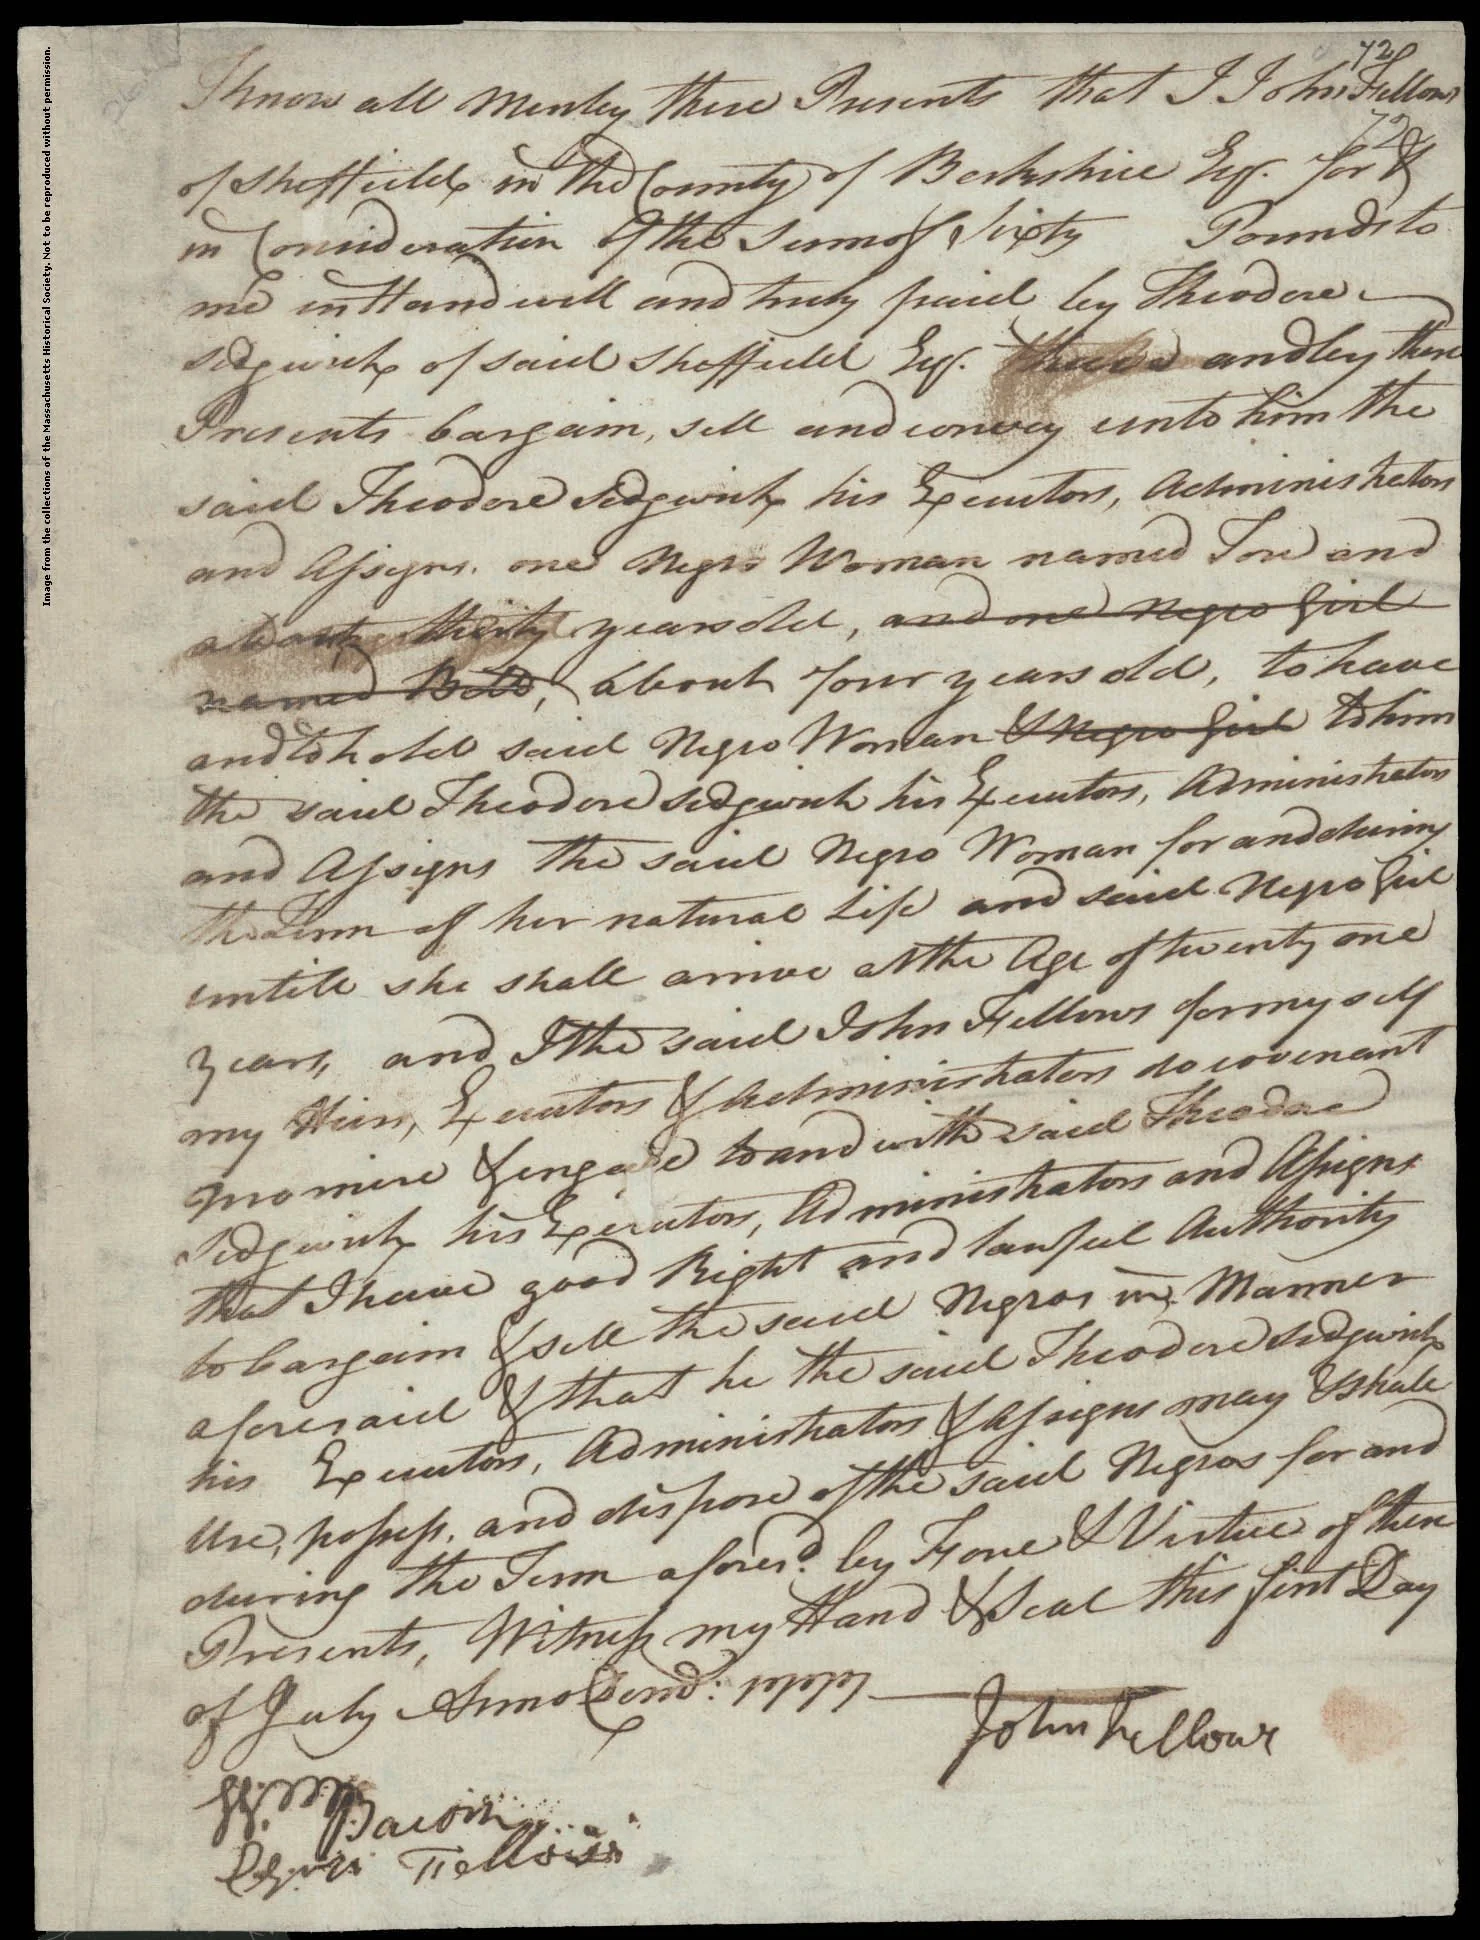 72
Know all Men by these Presents that I John Fellows
72
of Sheffield in the County of Berkshire Esqr. for &
in Consideration of the Sum of Sixty Pounds to
me in Hand well and truly paid by Theodore
Sedgwick of said Sheffield Esqr. and by these
Presents bargain, sell and convey unto him the
said Theodore Sedgwick his Executors, Administrators
and Assigns. one Negro Woman named Ton and
about thirty years old, and one Negro Girl
named Bett, about four years old, to have
and to hold said Negro Woman & Negro Girl to him
the said Theodore Sedgwick his Executors, Administrators
and Assigns the said Negro Woman for and during
the Term of her natural Life and said Negro Girl
untill she shall arrive at the Age of twenty one
years, and I the said John Fellows for my self
my Heirs, Executors & Administrators do covenant
promise & engage to and with said Theodore
Sedgwick his Executors, Administrators and Assigns
that I have good Right and lawful Authority
to bargain & sell the said Negros in Manner
aforesaid & that he the said Theodore Sedgwick
his Executors, Administrators & Assigns may & shall
Use, possess, and dispose of the said Negros for and
during the Term aforesd. by Force & Virtue of these
Presents, Witness my Hand & Seal this first Day
of July Anno Domd: 1777
John Fellows
Bacon
Fellows
Image from the collections of the Massachusetts Historical Society. Not to be reproduced without permission.